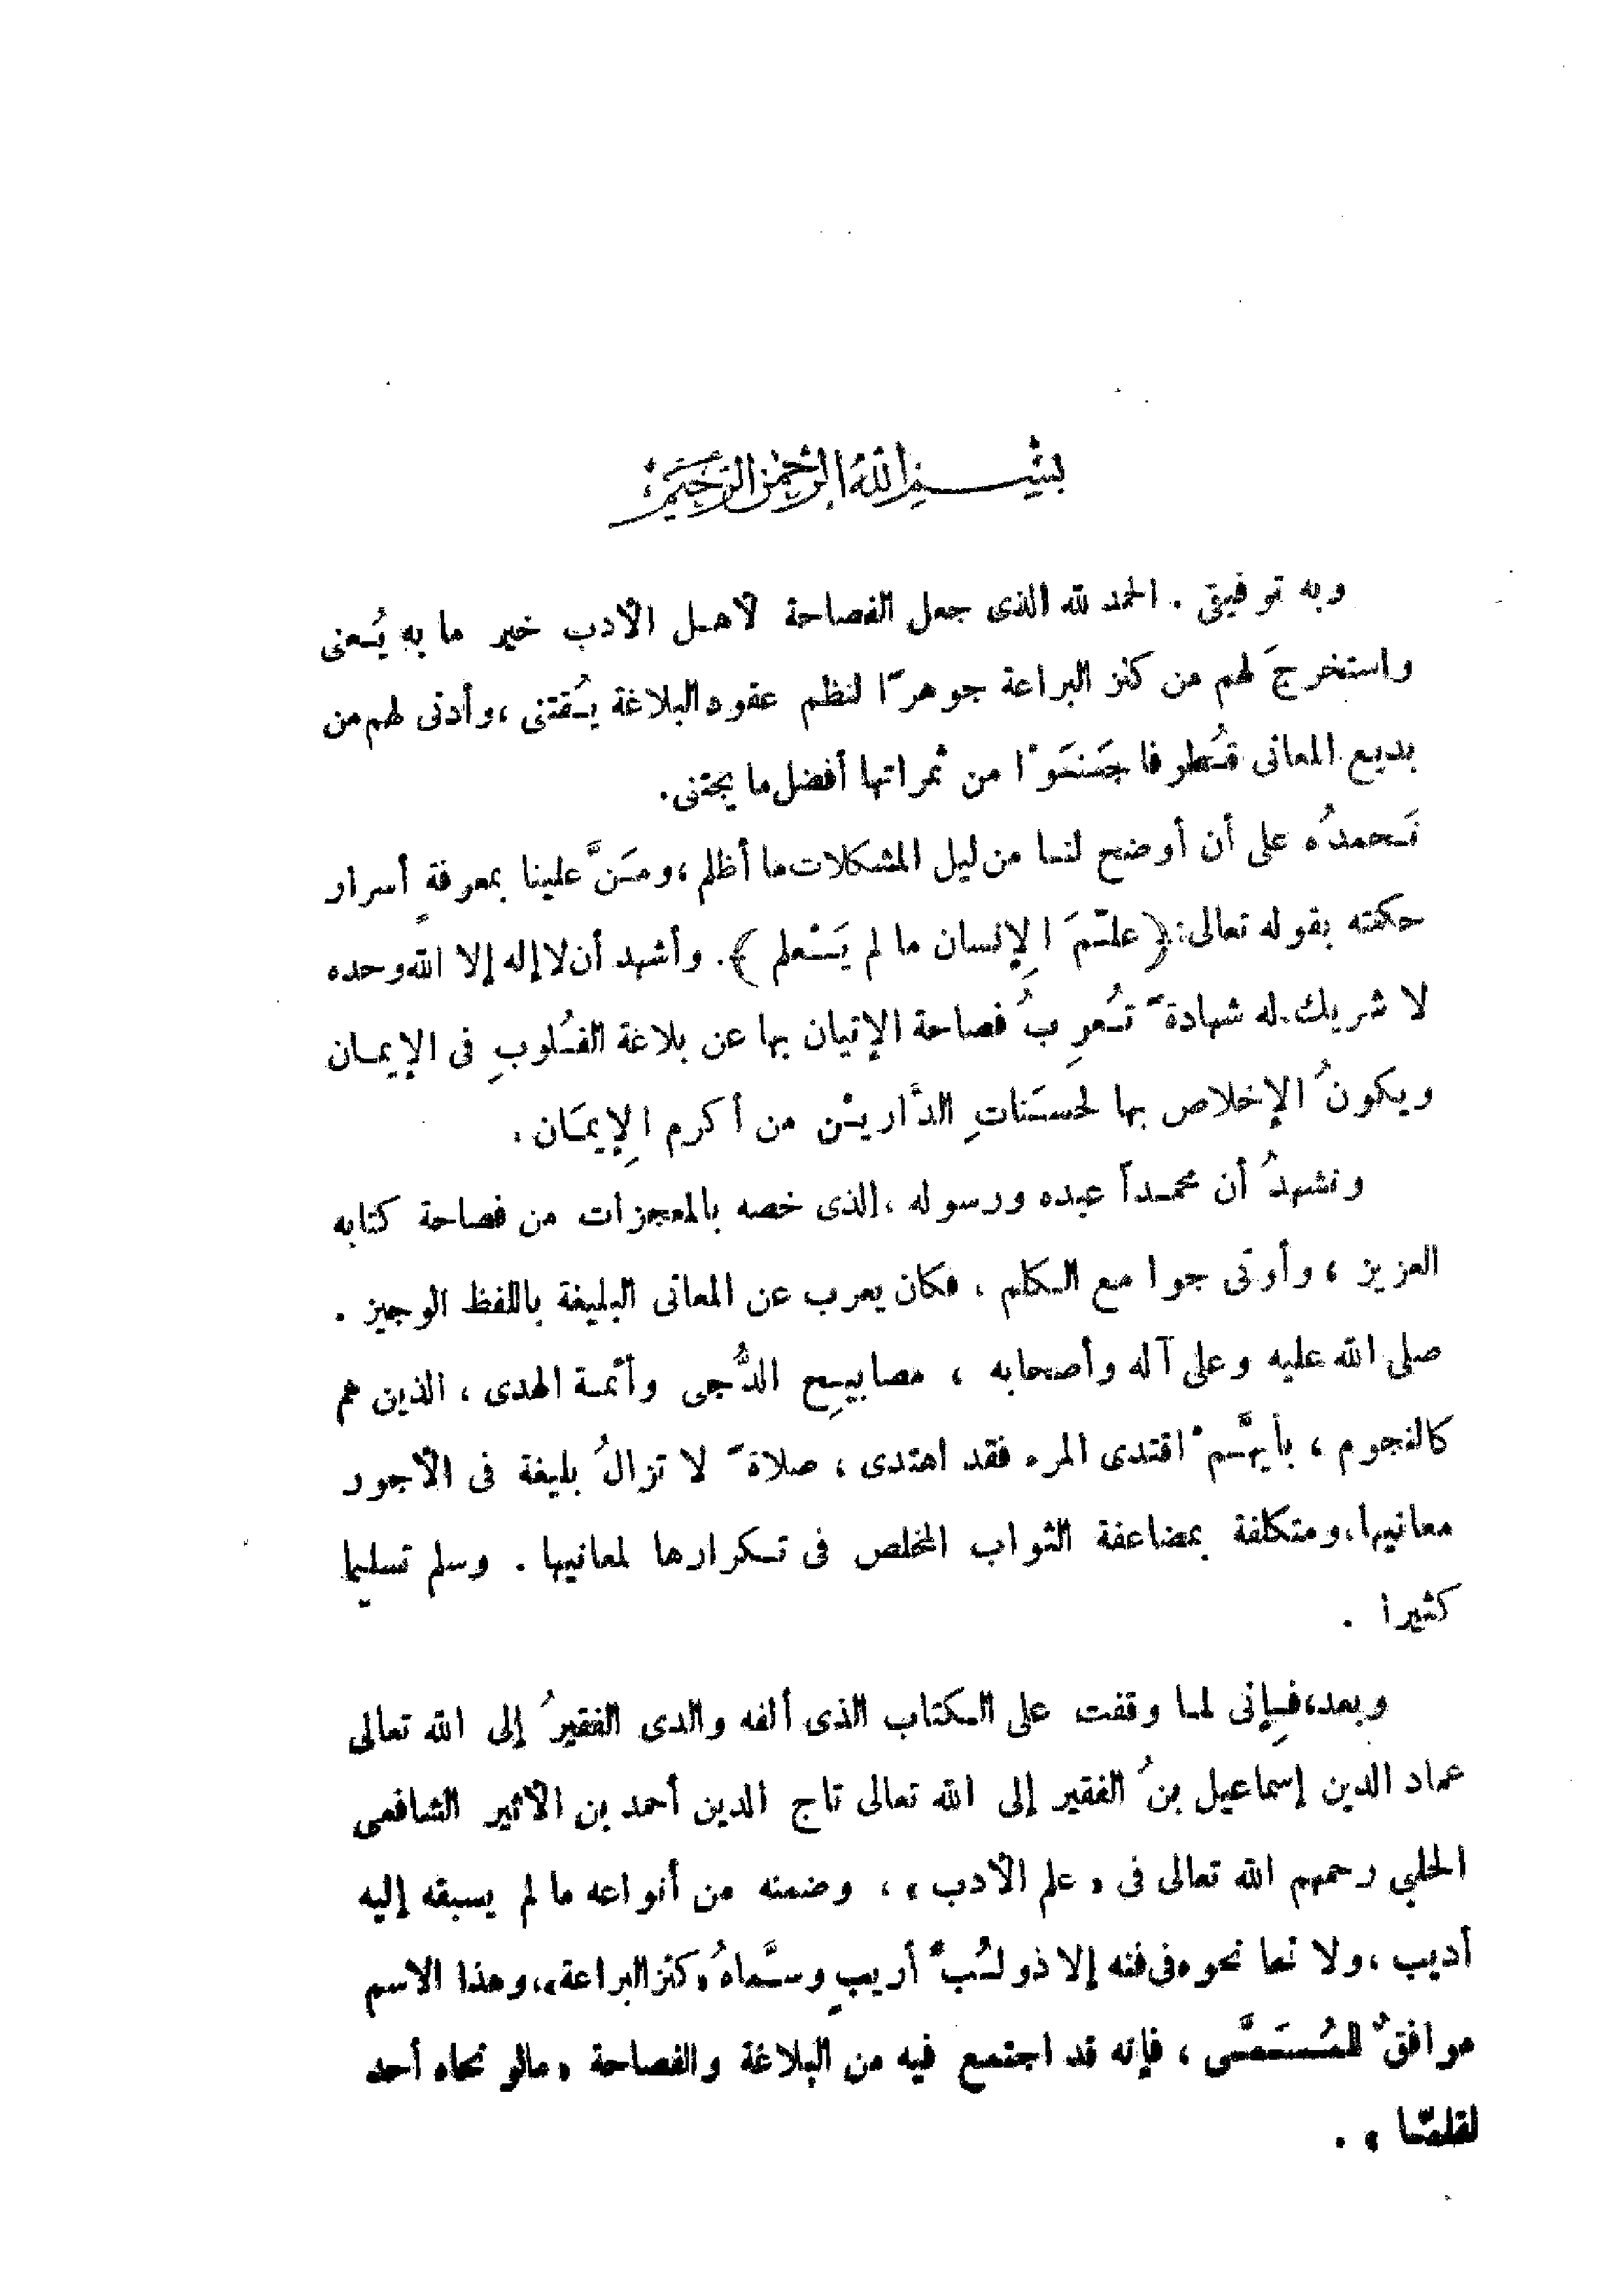 بِسْمِ اللهِ الرَّحْمٰنِ الرَّحِيمِ
وبه توفيقى . الحمد لله الذى جعل الفصاحة لأهـل الأدب خير ما به يُـعنى
واستخرجَ لهم من كنز البراعة جوهرًا لنظم عقود البلاغة يُـقتنى ، وأدنى لهم من
بديع المعانى قُـطوفا جَـنَـوْا من ثمراتها أفضل ما يجتنى .
نَـحمدُه على أن أوضح لنـا من ليل المشكلات ما أظلم ، ومَـنَّ علينا بمعرفةِ أسرار
حكمته بقوله تعالى : ( علـَّـمَ الإِنسان ما لم يَـعْـلم ) . وأشهد أن لا إله إلا الله وحده
لا شريك له شهادةً تُـعرِبُ فصاحة الإتيان بها عن بلاغة القُـلوبِ فى الإيمـان
ويكونُ الإخلاص بها لحسَـناتِ الدَّاريْـن من أكرم الإِيمَـان .
ونشهدُ أن محمـداً عبده ورسوله ، الذى خصه بالمعجزات من فصاحة كتابه
العزيز ، وأوتى جوامع الـكلم ، فكان يعرب عن المعانى البليغة باللفظ الوجيز .
صلى الله عليه وعلى آله وأصحابه ، مصابيـحِ الدُّجى وأئمـة الهدى ، الذين هم
كالنجوم ، بأيهِّـمْ اقتدى المرء فقد اهتدى ، صلاةً لا تزالُ بليغة فى الأجور
معانيها ، ومتكلفة بمضاعفة الثواب المخلص فى تـكرارها لمعانيها . وسلم تسليما
كثيرا .
وبعد ، فـإِنى لمـا وقفت على الـكتاب الذى ألفه والدى الفقيرُ إلى الله تعالى
عماد الدين إسماعيل بنُ الفقير إلى الله تعالى تاج الدين أحمد بن الأثير الشافعى
الحلبي رحمهم الله تعالى فى « علم الأدب » ، وضمنه من أنواعه ما لم يسبقه إليه
أديب ، ولا نحا نحوه فى فنه إلا ذو لـُبٍّ أريبٍ وسـَّماهُ « كنز البراعة » ، وهذا الاسم
موافقٌ للمُـسـَمَّـى ، فإنه قد اجتمع فيه من البلاغة والفصاحة « مالو نحاه أحد
لقلمَّـا » .